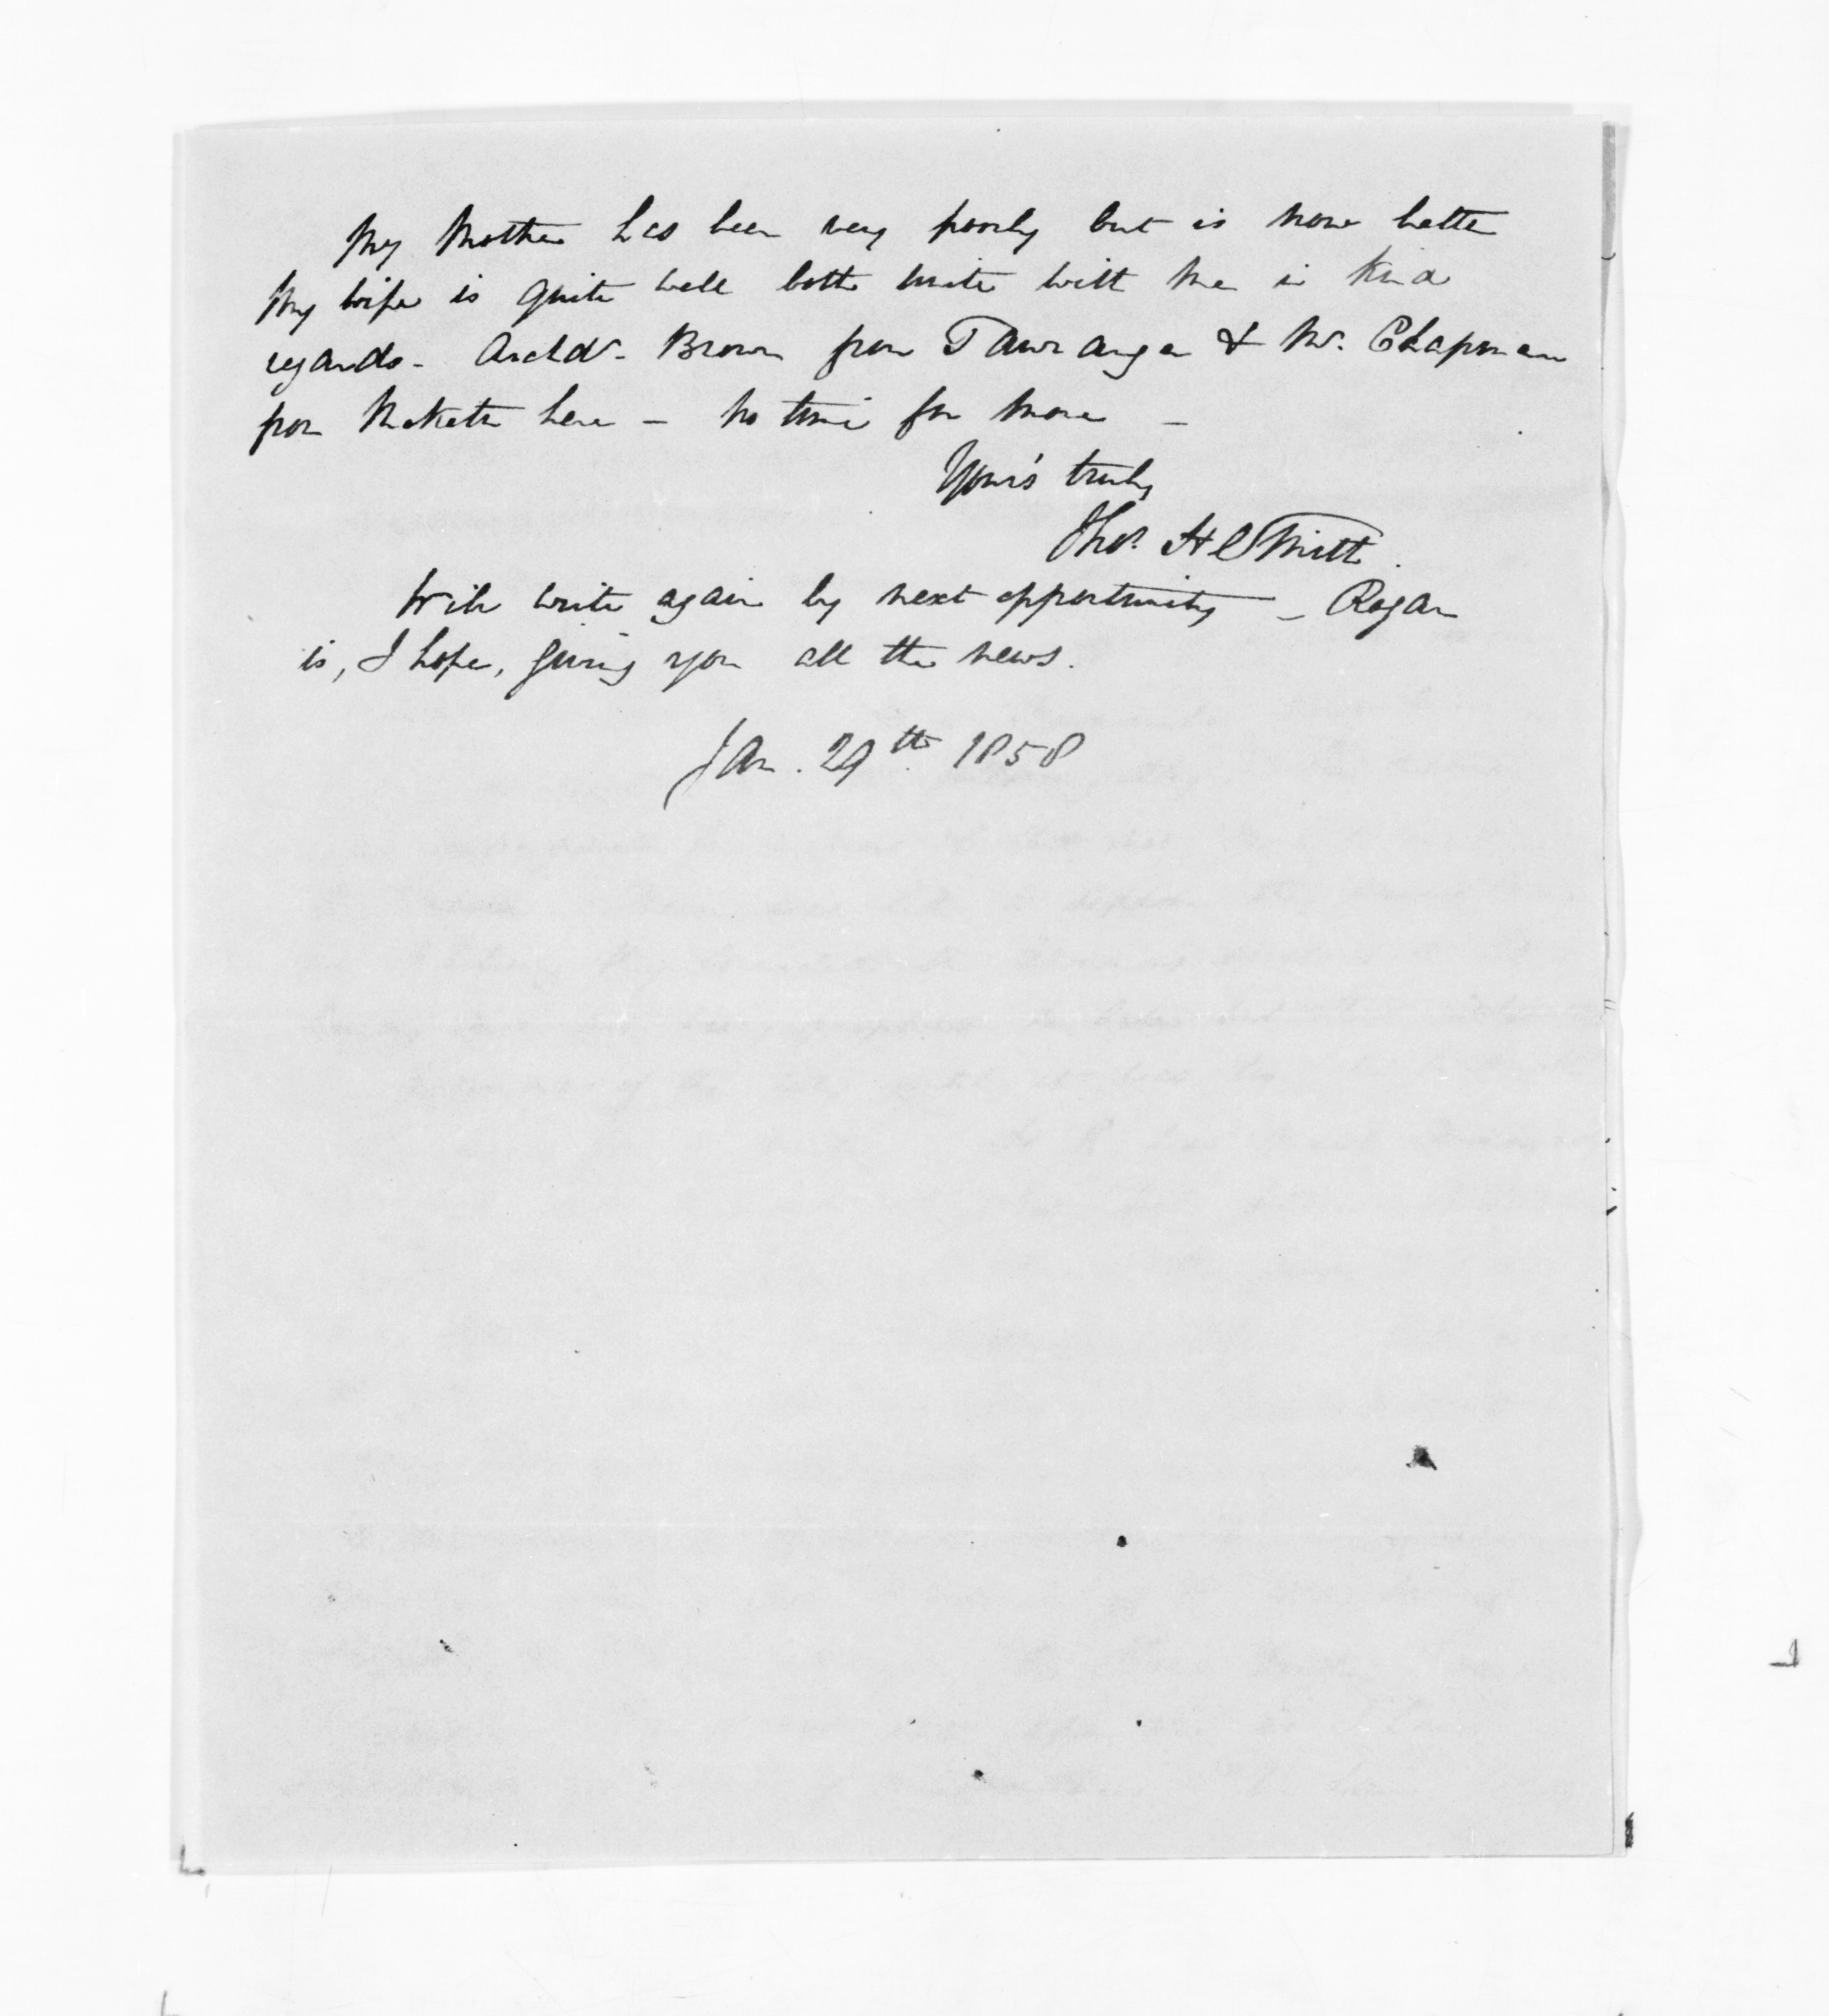 My Mother has been very poorly but is now better
My wife is quite well both unite with me in kind
regards - Archdn. Brown from Tauranga & Mr. Chapman
from Maketu here - no time for more -
Your's truly
Thos. H Smith.
Will write again by next opportunity - Rogan
is, I hope, giving you all the news.
Jan. 29th 1858